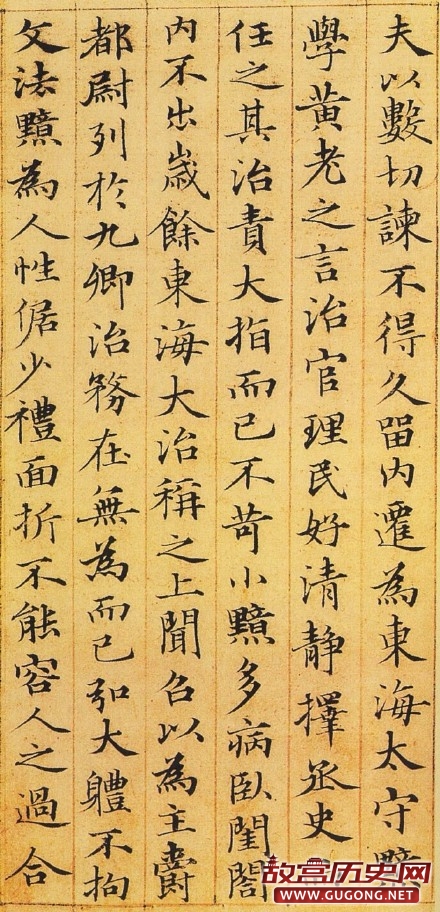 夫以數切諫不得久留內遷為東海太守黯
學黃老之言治官理民好清静擇丞史而
任之其治責大指而已不苛小黯多病臥閨閤
内不出歲餘東海大治稱之上聞召以為主爵
都尉列於九卿治務在無為而已引大軆不拘
文法黯為人性倨少禮面折不能容人之過合
故宫历史网
WWW.GUGONG.NET